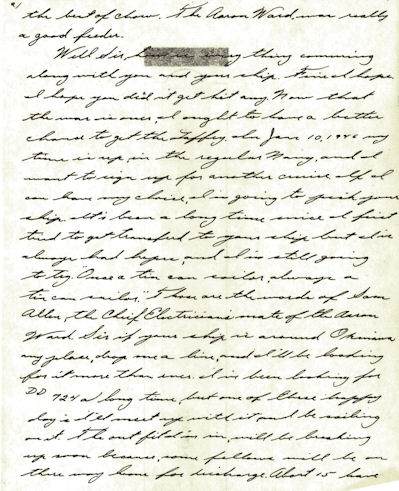 the best of chow. The Aaron Ward, was really
a good feeder.
Well Sir, how is every thing comming
along with you and your ship. Fine I hope.
I hope you did it get hit any. Now that
the war is over, I ought to have a better
chance to get the Laffey, also Jan 10, 1946 my
time is up, in the regular Navy, and I
want to sign up for another cruise, if I
can have my choice, I is going to pick your
ship. It's been a long time since I first
tried to get transfered to your ship, but I've
always had hopes, and I is still going
to try. Once a tin can sailor, always a
tin can sailor," those are the words of Sam
Allen, the Chief Electrician's mate of the Aaron
Ward. Sir if your ship is around Okinawa
any place, drop me a line, and I'll be looking
for it more than ever. I is been looking for
DD 724 a long time, but one of these happy
days I'll meet up with it and be sailing
on it. The outfit I'd is in, will be breaking
up soon because, some fellows will be on
there way home for discharge. About 15 have